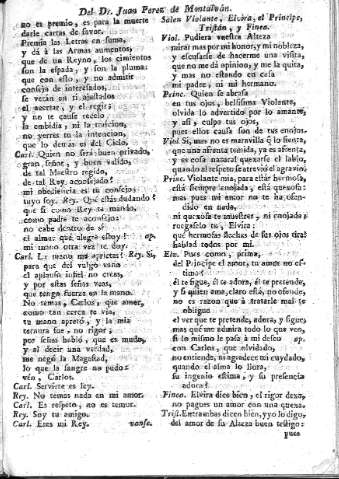 Del Dr. Juan Perez de Montalván.
no es premio, es para la muerte
darle cartas de favor.
Premia las Letras en suma,
y dá á las Armas aumentos,
que de un Reyno, los cimientos
son la espada, y son la pluma:
que con esto, y no admitir
consejo de interesados,
se verán en tí ajustados
el acertar, y el regir;
y no te cause rezelo
la embidia, ni la traicion,
no yerres tu la intencion,
que lo demás es del Cielo.
Carl. Quien no será buen privado,
gran señor, y buen valido,
de tal Maestro regido,
de tal Rey aconsejado?
mi obediencia es tu consejo;
tuyo soy. Rey. Qué estás dudando?
que si como Rey te mando,
como padre te aconsejo:
no cabe dentro de sí
el alma: qué alegre estoy! ap.
mi mano otra vez te doy.
Carl. La mano me aprietas? Rey. Sí,
para que del vulgo vano
el aplauso infiel no creas,
y por estas señas veas,
que tengo fuerza en la mano.
No temas, Carlos, que amor,
como tan cerca te vía,
tu mano apretó, y la mia
ternura fue, no rigor;
por señas habló, que es mudo,
y al decir una verdad,
me negó la Magestad,
lo que la sangre no pudo:
vén, Carlos.
Carl. Servirte es ley.
Rey. No temas nada en mi amor.
Carl. Es respeto, no es temor.
Rey. Soy tu amigo.
Carl. Eres mi Rey. vanse.
Salen Violante, Elvira, el Principe,
Tristán, y Fineo.
Viol. Pudiera vuestra Alteza
mirar mas por mi honor, y mi nobleza,
y escusarse de hacerme una visita,
que no me dá opinion, y me la quita,
y mas no estando en casa
mi padre, ni mi hermano.
Princ. Quien se abrasa
en tus ojos, bellisima Violante,
olvida lo advertido por lo amante,
y así, culpa tus ojos,
pues ellos causa son de tus enojos.
Viol. Sí, mas no es maravilla que lo sienta,
que una afrenta temida, ya es afrenta,
y es cosa natural quexarse el labio,
quando al respeto se atrevió el agravio.
Princ. Violante mia, para estár hermosa,
está siempre enojada, está quexosa:
mas pues mi amor no te ha ofendido
en nada,
ni quexosa te muestres, ni enojada;
ruegaselo tu, Elvira:
qué hermosas flechas de sus ojos tira!
hablad todos por mí.
Elv. Pues como, prima,
del Principe el amor, tu amor no estima?
él te sigue, él te adora, él te pretende,
y si quien ama, claro está, no ofende,
no es razon que á tratarle mal te
obligue
el ver que te pretende, adera, y sigue;
mas qué me admira todo lo que veo,
si lo mismo le pasa á mi deseo ap.
con Carlos, que olvidado,
no entiende, ni agradece mi cuydado,
quando el alma lo llora,
su ingenio estima, y su presencia
adora!
Fineo. Elvira dice bien, el rigor dexa,
no pagues un amor con una quexa.
Trist. Entrambas dicen bien, y yo lo digo,
del amor de su Alteza buen testigo:
pues